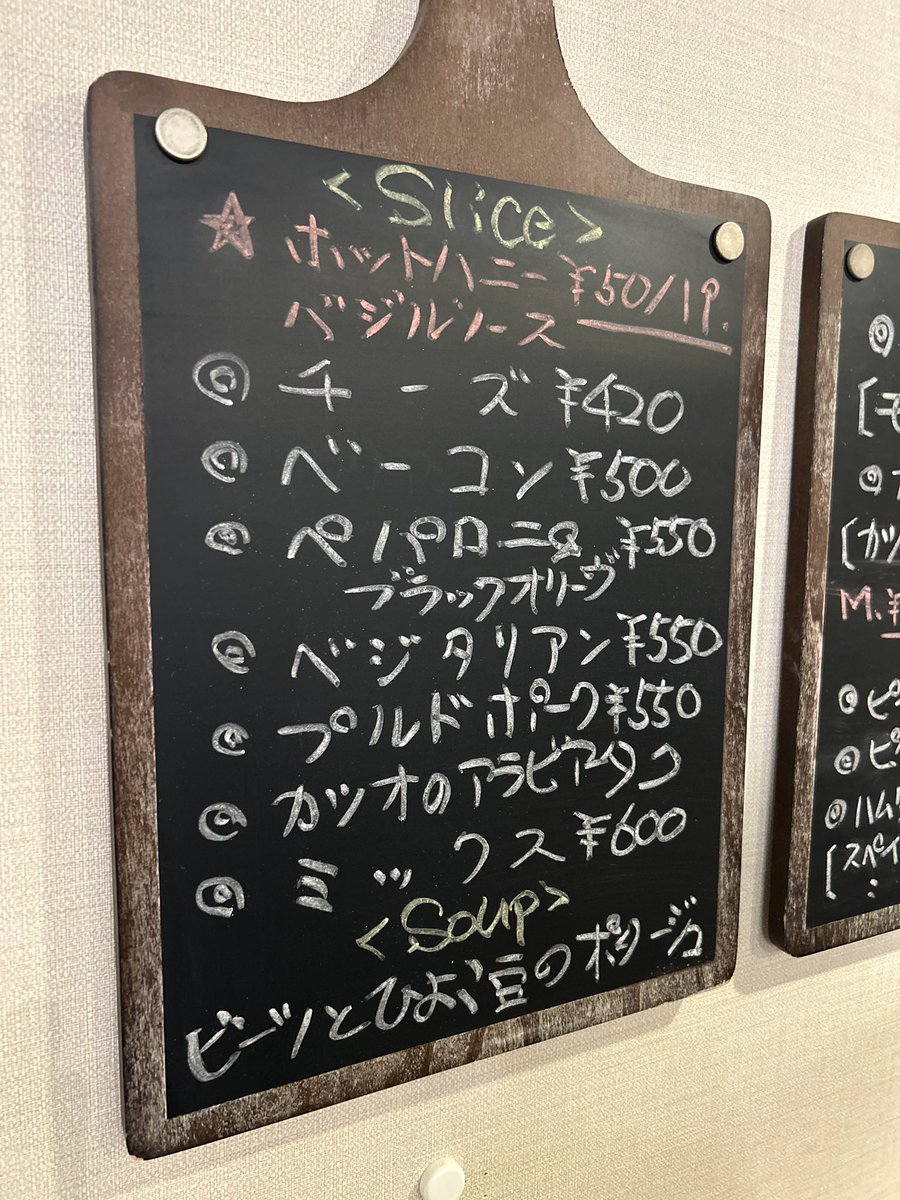 <Slice>
★ ホットハニー ¥50/1P.
バジルソース
◎ チーズ ¥420
◎ ベーコン ¥500
◎ ペパロニ& ¥550
ブラックオリーヴ
◎ ベジタリアン ¥550
◎ プルドポーク ¥550
◎ カツオのアラビアータ
◎ ミックス ¥600
<Soup>
ビーツとひよこ豆のポタージュ
◎
[モ
◎
[カツ
M. ¥
◎ ピ
◎ ピ
◎ ハム
[スペイ